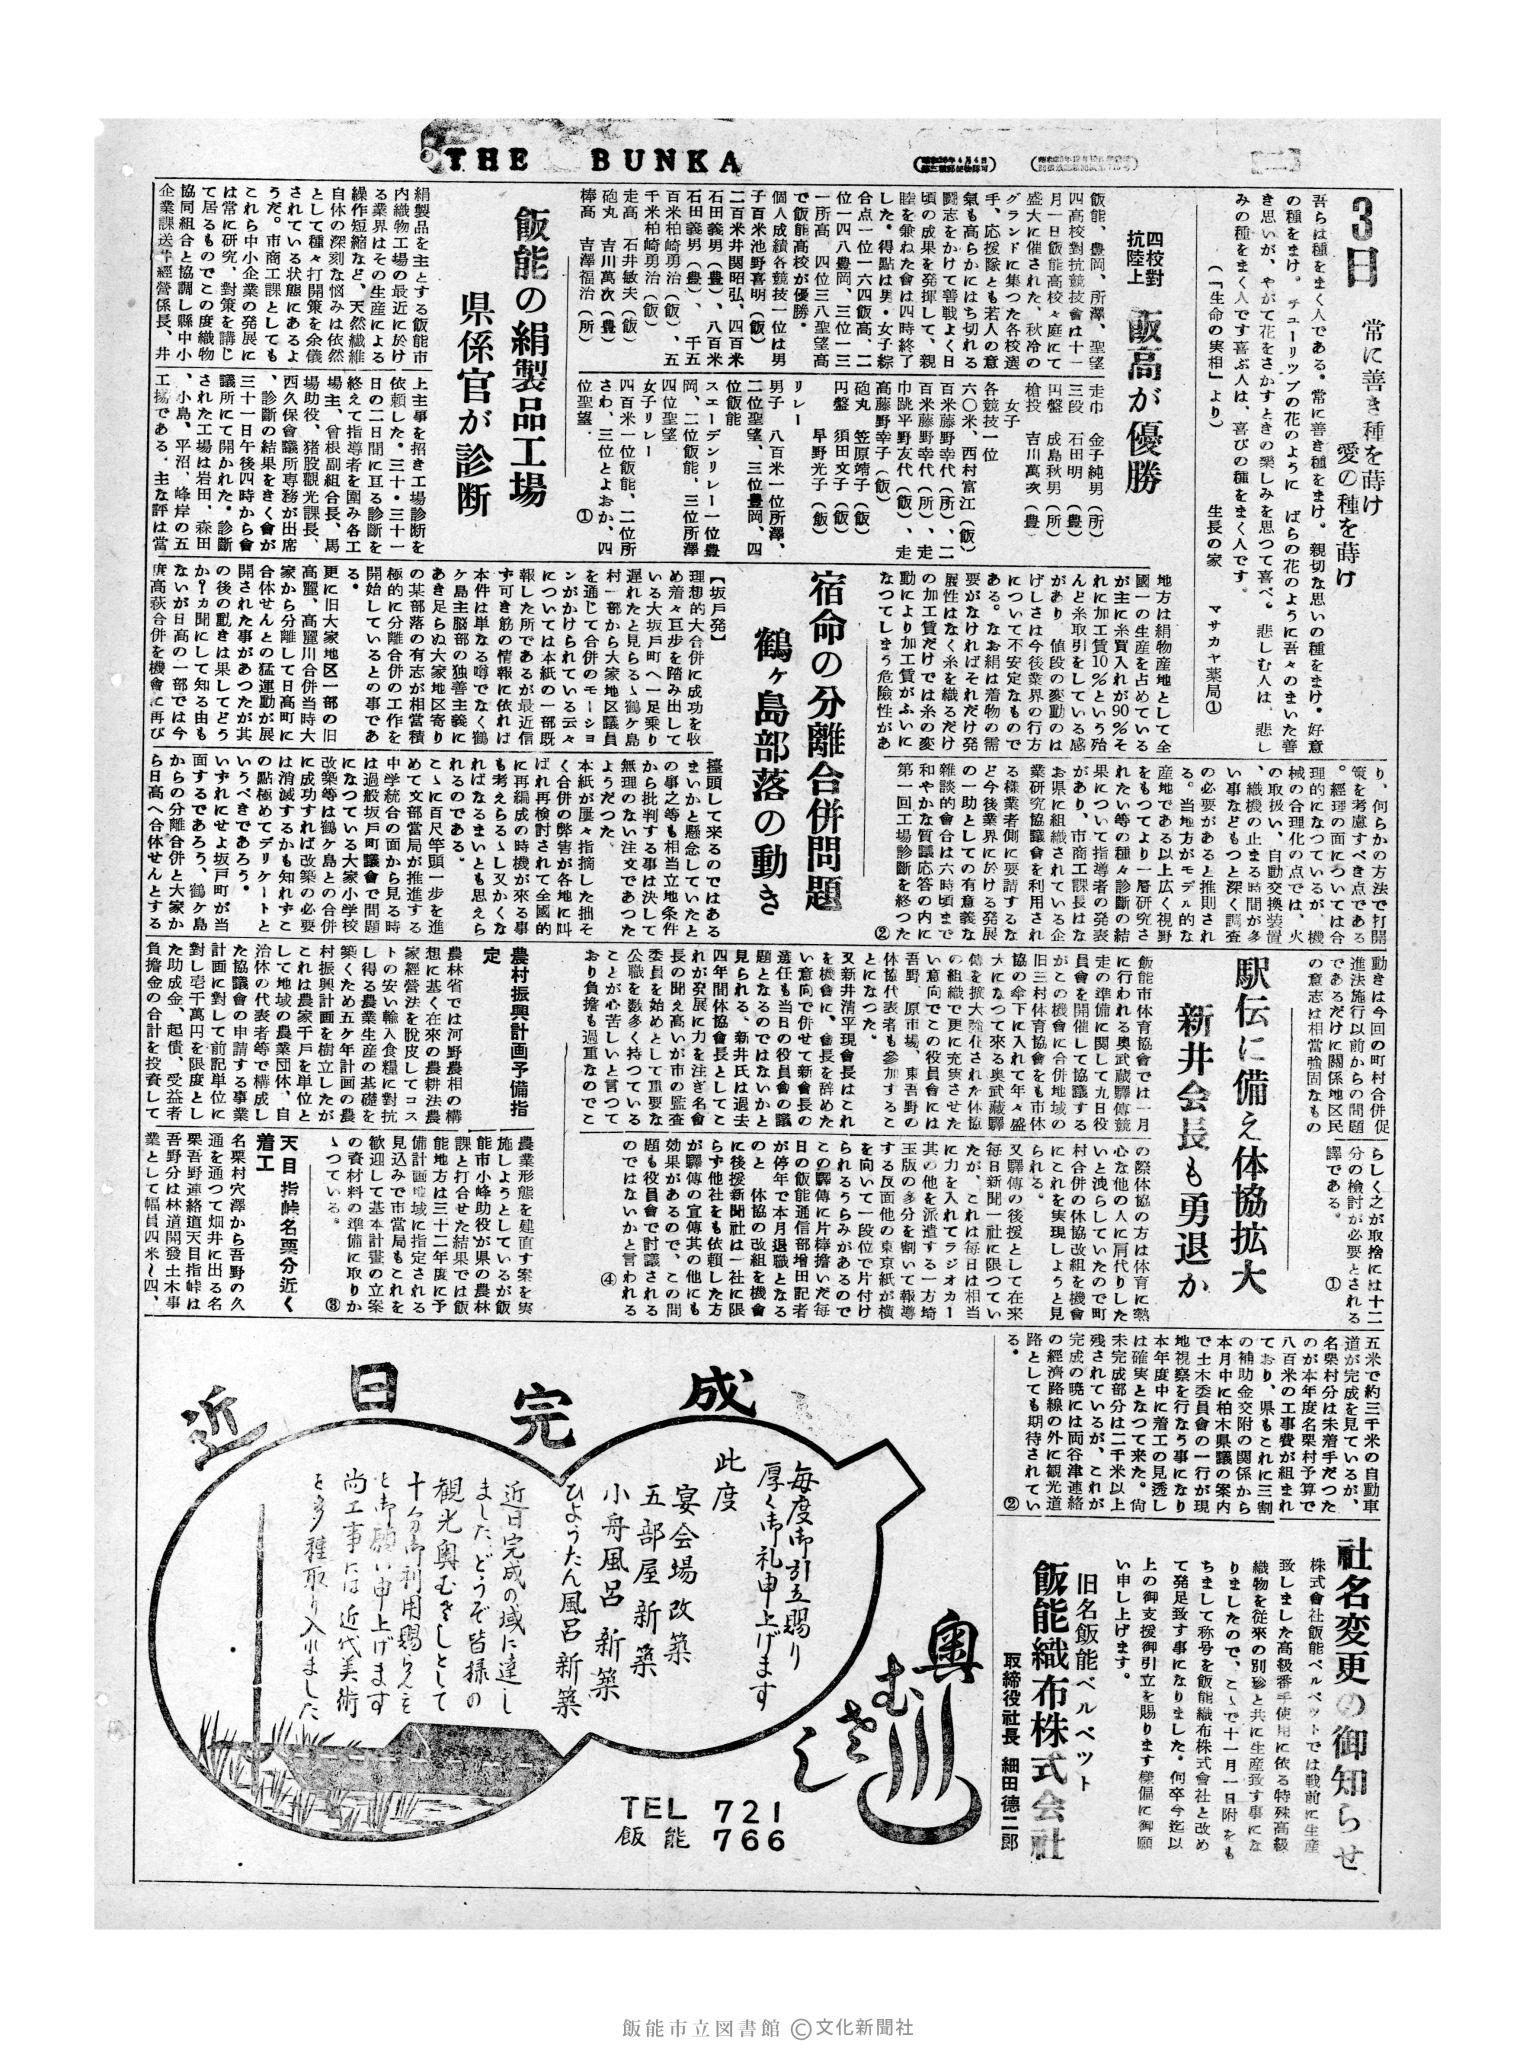 THE BUNKA
3日
常に善き種を蒔け
愛の種を蒔け
吾らは種をまく人である。常に善き種をまけ。親切な思いの種をまけ。好意
の種をまけ。チューリップの花のように ばらの花のように吾々のまいた善
き思いが、やがて花をさかすときの楽しみを思つて喜べ。悲しむ人は、悲し
みの種をまく人です喜ぶ人は、喜びの種をまく人です。
(「生命の実相」より)
生長の家 マサカヤ薬局①
四校対
抗陸上
飯高が優勝
飯能、豊岡、所澤、聖望
四高校対抗競技會は十一
月一日飯能高校々庭にて
盛大に催された、秋冷の
グランドに集つた各校選
手、応援隊とも若人の意
氣も高らかにはち切れる
闘志をかけて善戦よく日
頃の成果を発揮して、親
睦を兼ねた會は四時終了
した。得點は男・女子綜
合点一位一六四飯高、二
位一四八豊岡、三位一三
一所高、四位三八聖望高
で飯能高校が優勝。
個人成績各競技一位は男
子百米池野喜明(飯)
二百米井関昭弘、四百米
石田義男(豊)、八百米
石田義男(豊)、千五
百米柏崎勇治(飯)、五
千米柏崎勇治(飯)
走高 石井敏夫(飯)
砲丸 吉川萬次(豊)
棒高 吉澤福治(所)
走巾 金子純男(所)
三段 石田明(豊)
円盤 成島秋男(所)
槍投 吉川萬次(豊)
女子
各競技一位
六〇米、西村富江(飯)
百米藤野幸代(所)、二
百米藤野幸代(所)、走
巾跳平野友代(飯)、走
高藤野幸子(飯)
砲丸 笠原靖子(飯)
円盤 須田文子(飯)
早野光子(飯)
リレー
男子 八百米一位所澤、
二位聖望、三位豊岡、四
位飯能
スエーデンリレー一位豊
岡、二位飯能、三位所澤
四位聖望
女子リレー
四百米一位飯能、二位所
さわ、三位とよおか、四
位聖望. ①
飯能の絹製品工場
県係官が診断
絹製品を主とする飯能市
内織物工場の最近に於け
る業界はその生産による
操作短縮など、天然繊維
自体の深刻な悩みは依然
として種々打開策を余儀
されている状態にあるよ
うだ。市商工課としても
これら中小企業の発展に
は常に研究、對策を講じ
て居るものでこの度織物
協同組合と協調し縣中小
企業課送井經營係長、井
上主事を招き工場診断を
依頼した。三十・三十一
日の二日間に亘る診断を
終えて指導者を囲み各工
場主、曾根副組合長、馬
場助役、猪股觀光課長、
西久保會議所専務が出席
、診断の結果をきく會が
三十一日午後四時から會
議所にて開かれた。診断
された工場は岩田、森田
、小島、平沼、峰岸の五
工場である。主な評は當
地方は絹物産地として全
國一の生産を占めている
が主に糸買入れが90%そ
れに加工賃10%という殆
んど糸取引をしている感
があり 値段の変動のは
げしさは今後業界の行方
について不安定なもので
ある。なお絹は着物の需
要がなければそれだけ発
展性はなく糸を織るだけ
の加工賃だけでは糸の変
動により加工賃がふいに
なつてしまう危険性があ
り、何らかの方法で打開
策を考慮すべき点である
。經理の面については合
理的になつているが、機
械の合理化の点では、火
の取扱い、自動交換装置
、織機の止まる時間が多
い事などもつと深く調査
の必要があると推則され
る。当地方がモデル的な
産地である以上広く視野
をもつてより一層研究さ
れたい等の種々診断の結
果について指導者の発表
があり、市商工課長はな
お県に組織されている企
業研究協議會を利用され
る様業者側に要請するな
ど今後業界に於ける発展
の一助としての有意義な
雑談的會合は六時頃まで
和やかな質議応答の内に
第一回工場診断を終つた
②
宿命の分離合併問題
鶴ヶ島部落の動き
【坂戸発】
理想的大合併に成功を収
め着々巨歩を踏み出して
いる大坂戸町へ一足乗り
遅れたと見らるゝ鶴ケ島
村一部から大家地区議員
を通じて合併のモーショ
ンがかけられている云々
については本紙の一部既
報した所であるが最近信
ず可き筋の情報に依れば
本件は単なる噂でなく鶴
ケ島主脳部の独善主義に
あき足らぬ大家地区寄り
の某部落の有志が相當積
極的に分離合併の工作を
開始しているとの事であ
る。
更に旧大家地区一部の旧
高麗、高麗川合併当時大
家から分離して日高町に
合体せんとの猛運動が展
開された事があつたが其
の後の動きは果してどう
か?カ聞にして知る由も
ないが日高の一部では今
度高萩合併を機會に再び
擡頭して来るのではある
まいかと懸念していたと
の事之等も相当立地条件
から批判する事は決して
無理のない注文であつた
ようだつた。
本紙が屡々指摘した拙そ
く合併の弊害が各地に叫
ばれ再検討されて全國的
に再編成の時機が來る事
も考えらるゝし又かくな
ければなるまいとも思えら
れるのである。
こゝに百尺竿頭一歩を進
めて文部當局が推進する
中学統合の面から見る時
は過般坂戸町議會で問題
になつている大家小学校
改築等は鶴ケ島との合併
に成功すれば改築の必要
は消滅するかも知れずこ
の點極めてデリケートと
いうべきであろう。
いずれにせよ坂戸町が当
面するであろう、鶴ケ島
からの分離合併と大家か
ら日高へ合体せんとする
動きは今回の町村合併促
進法施行以前からの問題
であるだけに関係地区民
の意志は相當強固なもの
らしく之が取捨には十二
分の検討が必要とされる
譯である。 ①
駅伝に備え体協拡大
新井会長も勇退か
飯能市体育協會では一月
に行われる奥武蔵驛傳競
走の準備に関して九日役
員會を開催して協議する
がこの機會に合併地域の
旧三村体育協會をも市体
協の傘下に入れて年々盛
大になつて來る奥武蔵驛
傳を拡大強化された体協
の組織で更に充実させた
い意向でこの役員會には
吾野、原市場、東吾野の
体協代表者も參加するこ
とになつた。
又新井清平現會長はこれ
を機會に、會長を辞めた
い意向で併せて新會長の
選任も当日の役員會の議
題となるのではないかと
見られる。新井氏は過去
四年間体協會長としてこ
れが発展に力を注ぎ名會
長の聞え高いが市の監査
委員を始めとして重要な
公職を数多く持つている
ことが心苦しいと言つて
おり負擔も過重なのでこ
の際体協の方は体育に熱
心な他の人に肩代りした
いと洩らしていたので町
村合併の体協改組を機會
にこれを実現しようと見
られる。
又驛傳の後援として在来
毎日新聞一社に限つてい
たが、これは毎日は相当
に力を入れてラジオカー
其の他を派遣する一方埼
玉版の多分を割いて報導
する反面他の東京紙が横
を向いて一段位で片付け
られるうらみがあるので
この驛傳に片棒擔いだ毎
日の飯能通信部増田記者
が停年で本月退職となる
のと 体協の改組を機會
に後援新聞社は一社に限
らず他社をも依頼した方
が驛傳の宣傳其の他にも
効果があるので、この問
題も役員會で討議される
のではないかと言われる
④
農村振興計画予備指
定
農林省では河野農相の構
想に基く在來の農耕法農
家經營法を脱皮してコス
トの安い輸入食糧に對抗
し得る農業生産の基礎を
築くため五ケ年計画の農
村振興計画を樹立したが
これは農家千戸を単位と
して地域の農業団体、自
治体の代表者等で構成し
た協議會の申請する事業
計画に對して前記単位に
對し壱千萬円を限度とし
た助成金、起債、受益者
負擔金の合計を投資して
農業形態を建直す案を実
施しようとしているが飯
能市小峰助役が県の農林
課と打合せた結果では飯
能地方は三十二年度に予
備計画地域に指定される
見込みで市當局もこれを
歓迎して基本計畫の立案
の資材料の準備に取りか
ゝつている。 ③
天目指峠名栗分近く
着工
名栗村穴澤から吾野の久
通を通つて畑井に出る名
栗吾野連絡道天目指峠は
吾野分は林道開發土木事
業として幅員四米〜四、
五米で約三千米の自動車
道が完成を見ているが、
名栗村分は未着手だつた
のが本年度名栗村予算で
八百米の工事費が組まれ
ており、県もこれに三割
の補助金交附の関係から
本月中に柏木県議の案内
で土木委員會の一行が現
地視察を行なう事になり
本年度中に着工の見透し
は確実となつて来た。尚
未完成部分は二千米以上
残されているが、これが
完成の暁には両谷津連絡
の經済路線の外に観光道
路としても期待されてい
る。 ②
社名変更の御知らせ
株式會社飯能ベルベットでは戦前に生産
致しました高級番手使用に依る特殊高級
織物を従来の別珍と共に生産致す事にな
りましたので、こゝで十一月一日附をも
ちまして称号を飯能織布株式會社と改め
て発足致す事になりました。何卒今迄以
上の御支援御引立を賜ります様偏に御願
い申し上げます。
旧名飯能ベルベット
飯能織布株式会社
取締役社長 細田德二郎
近日完成
毎度御引立賜り
厚く御礼申上げます
此度
宴会場改築
五部屋新築
小舟風呂新築
ひょうたん風呂新築
近日完成の域に達し
ました、どうぞ皆様の
観光奥むさしとして
十分御利用賜らんこ
と御願い申上げます
尚工事には近代美術
を多種取り入れました
奥むさし
TEL 721
飯能 766
飯能市立図書館 ©文化新聞社